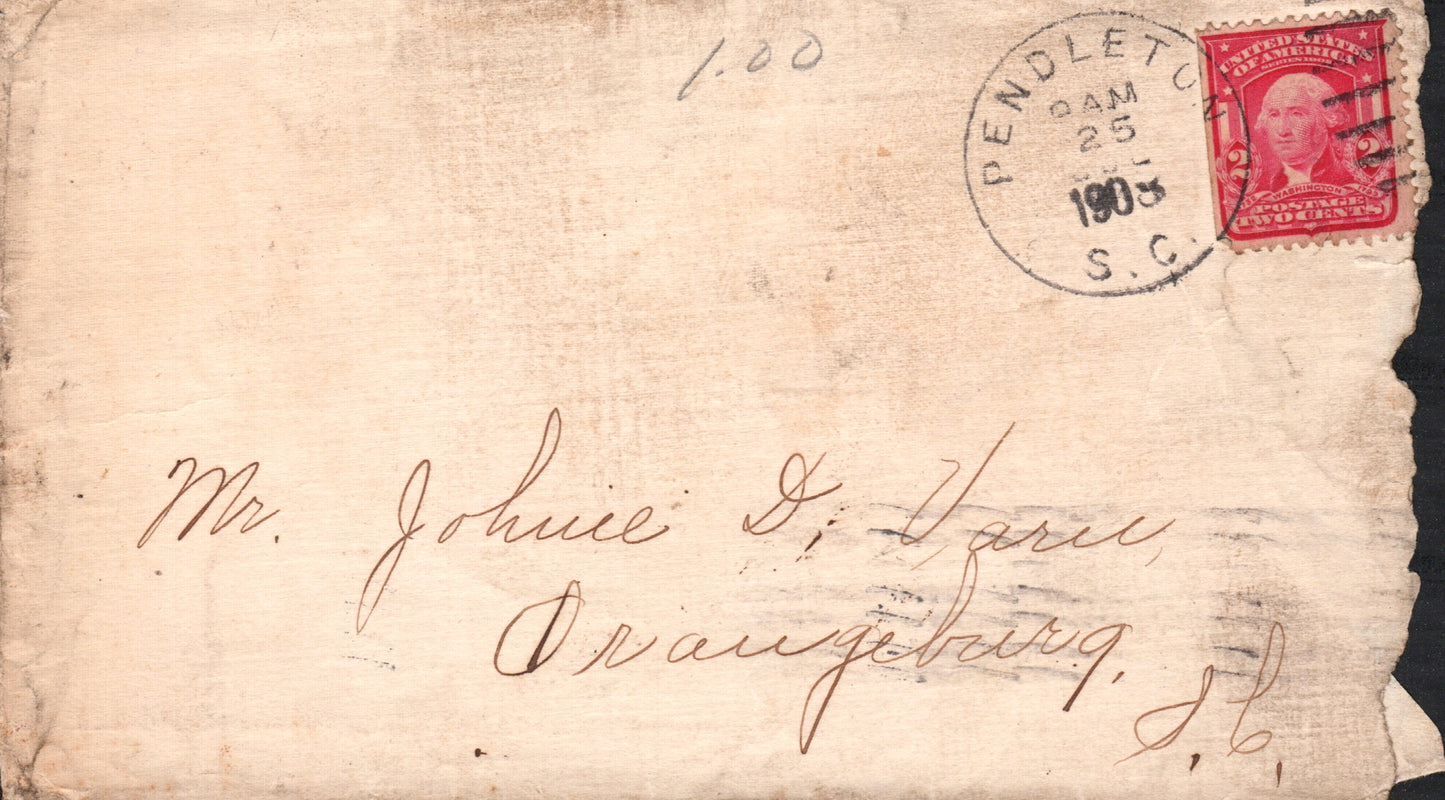 1.00
PENDLETON
AM
25
190
S.C.
UNITED STATES
OF AMERICA
SERIES 1902
2 2
WASHINGTON
POSTAGE
TWO CENTS
Mr. Johnie D. Varn,
Orangeburg,
S.C.